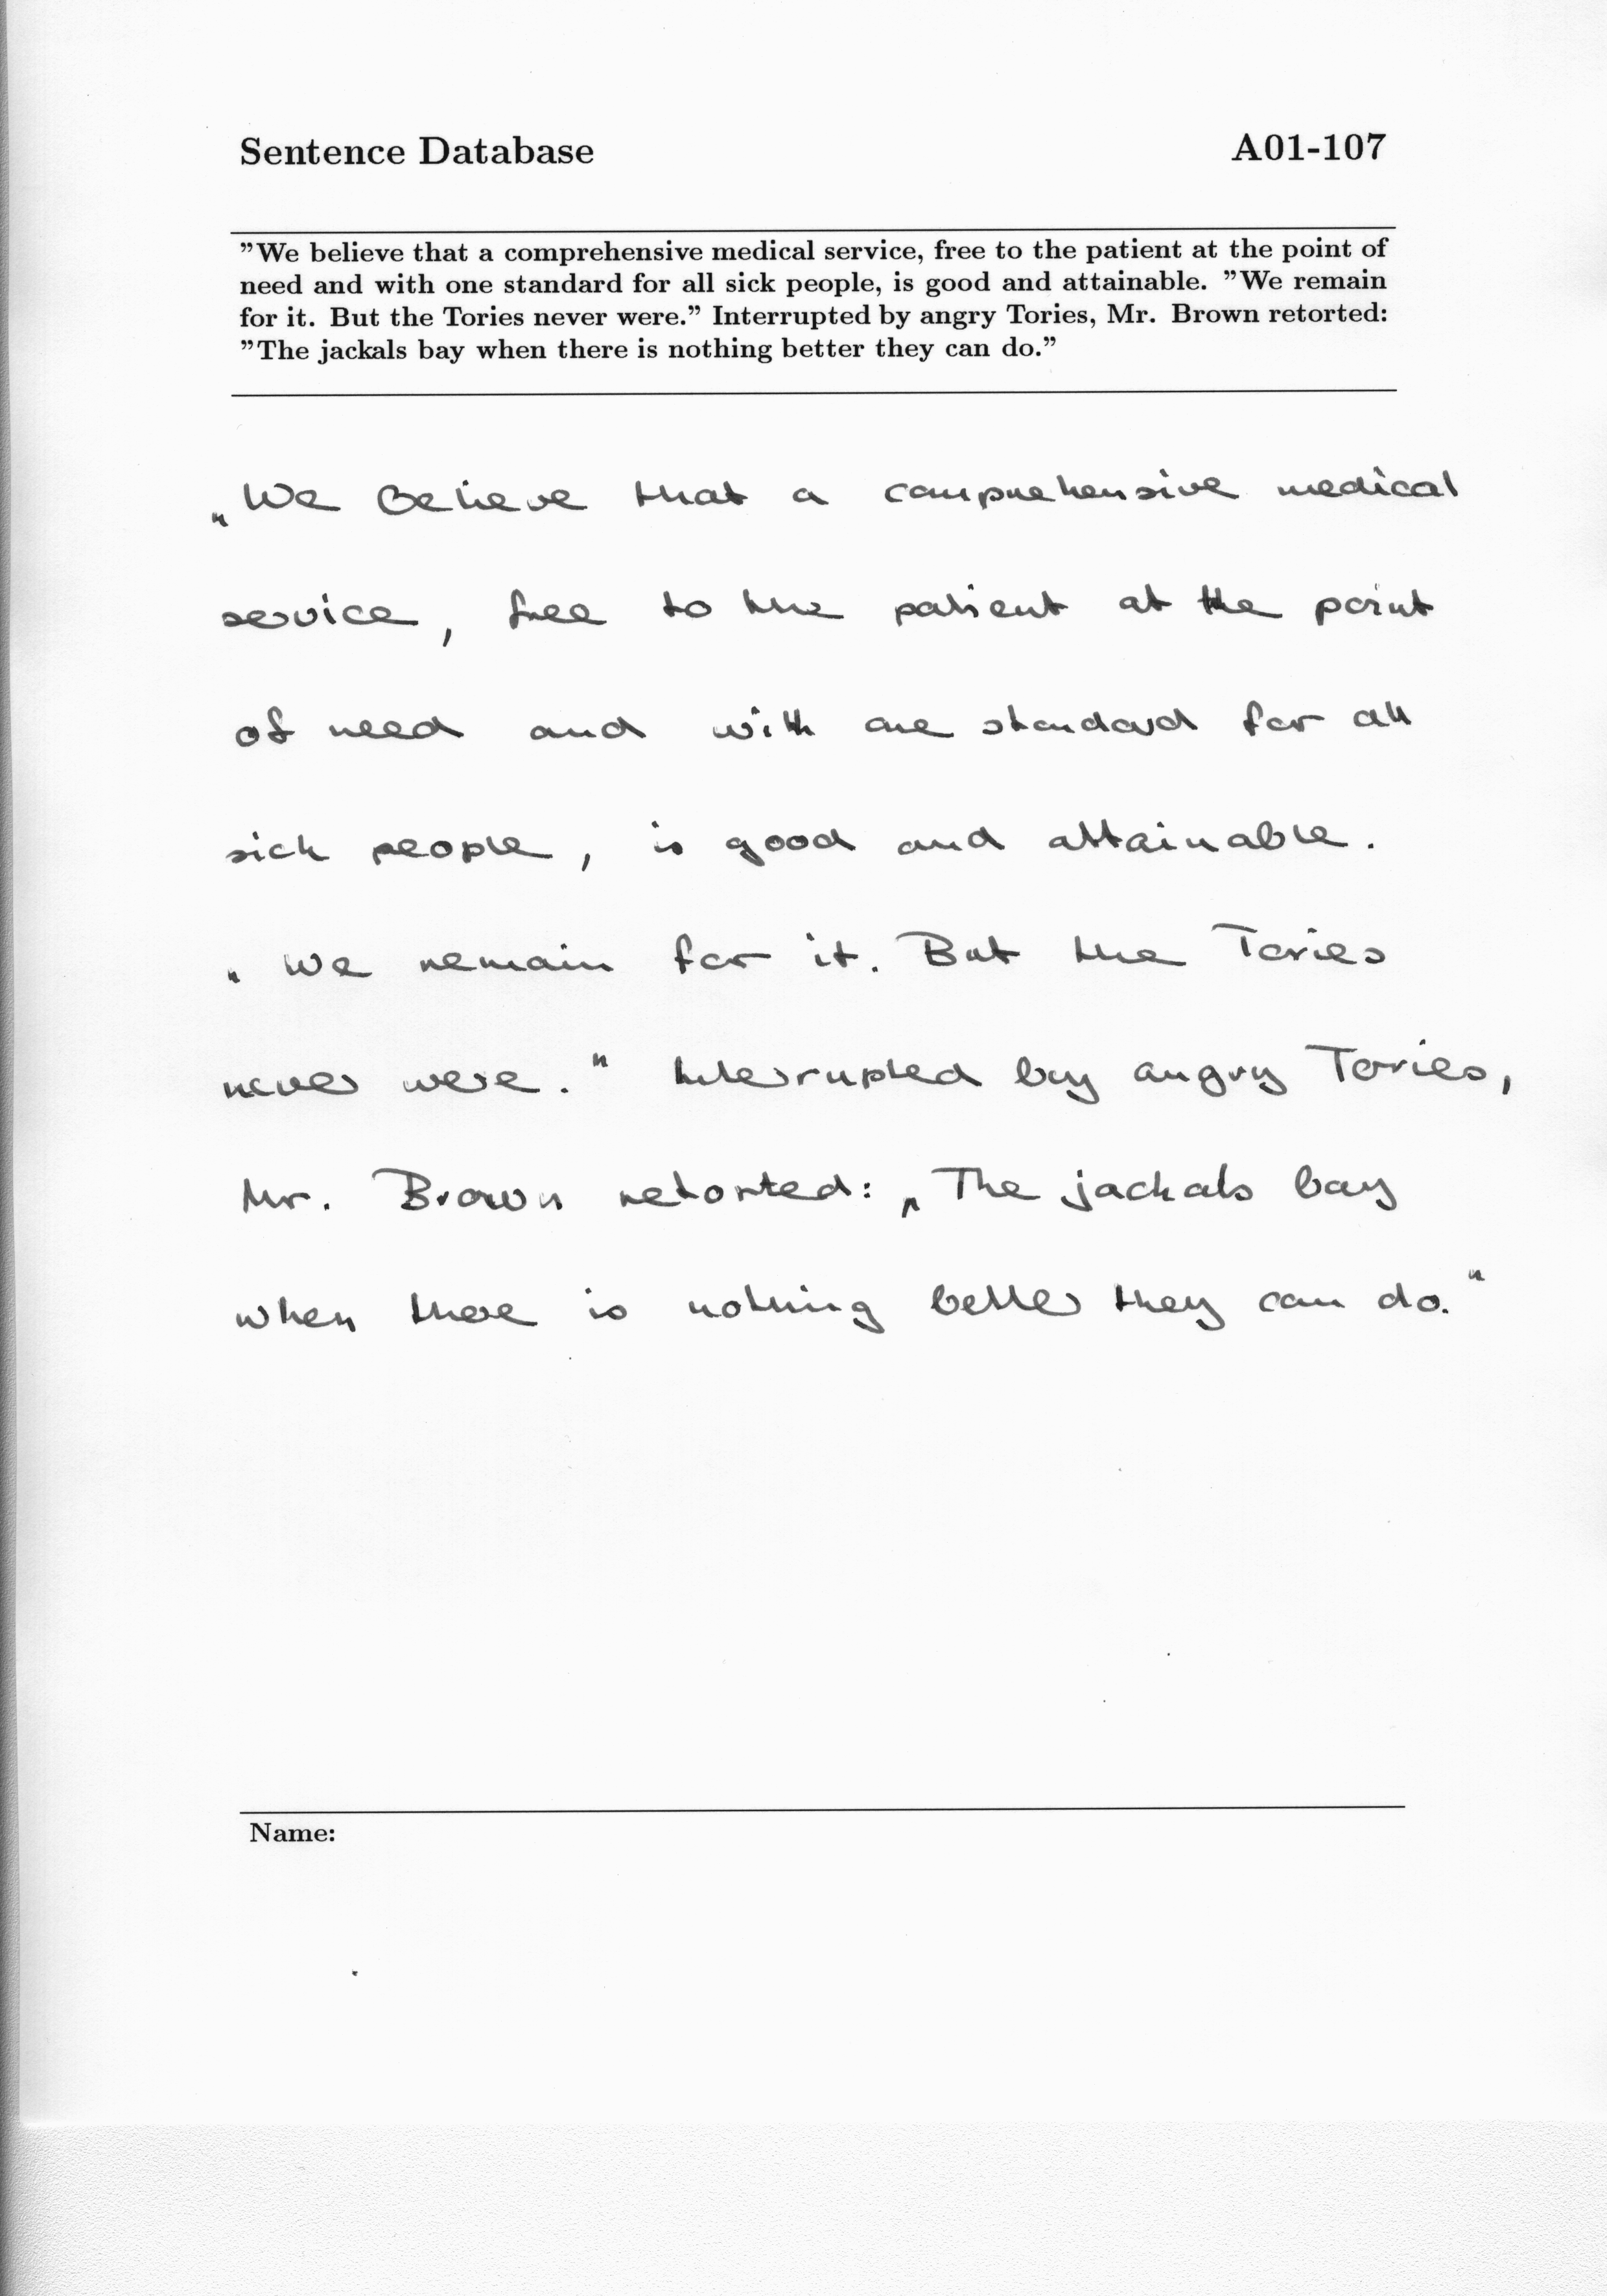 Sentence Database A01-107
"We believe that a comprehensive medical service, free to the patient at the point of
need and with one standard for all sick people, is good and attainable. "We remain
for it. But the Tories never were." Interrupted by angry Tories, Mr. Brown retorted:
"The jackals bay when there is nothing better they can do."
„We believe that a comprehensive medical
service, free to the patient at the point
of need and with one standard for all
sick people, is good and attainable.
„We remain for it. But the Tories
never were." Interrupted by angry Tories,
Mr. Brown retorted: „The jackals bay
when there is nothing better they can do."
Name: